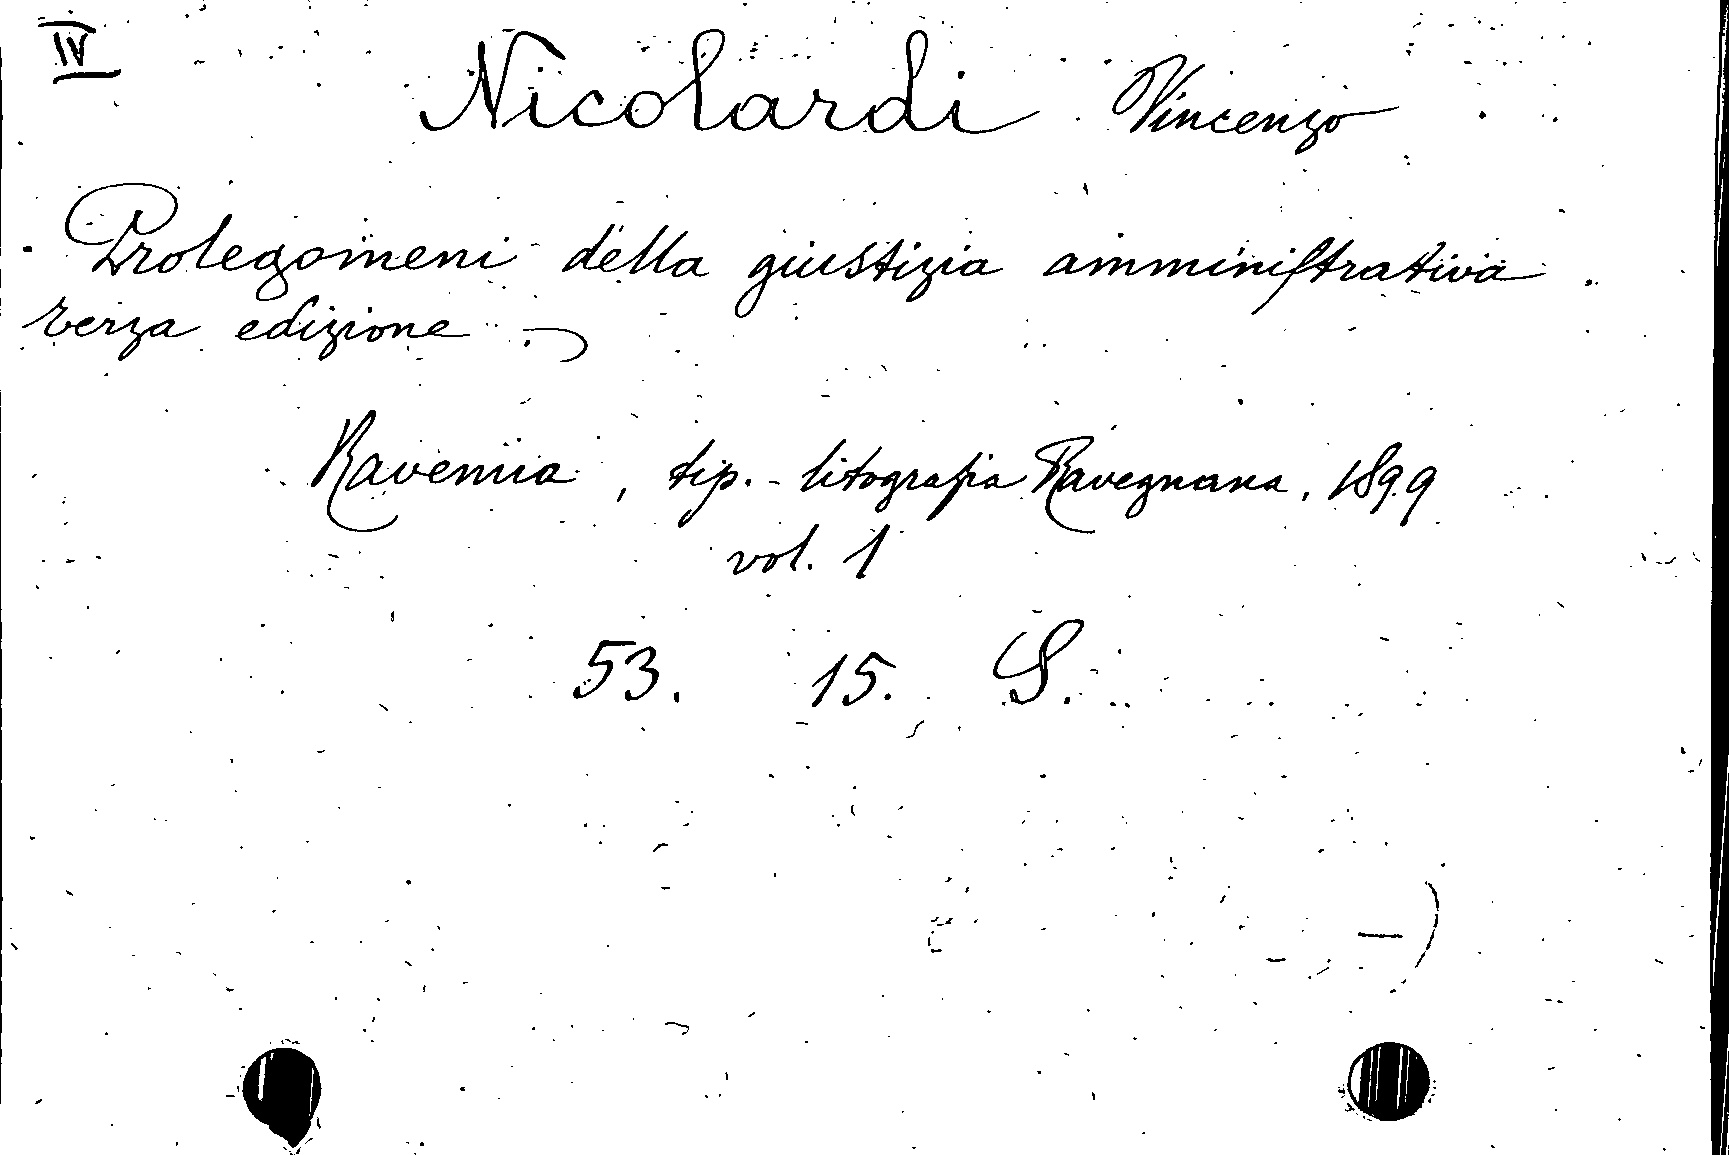 IV
Nicolardi Vincenzo
Prolegomeni della giustizia amministrativa
terza edizione.
Ravenna, tip.-litografia Ravegnana, 1899
vol. 1
53. 15. S.